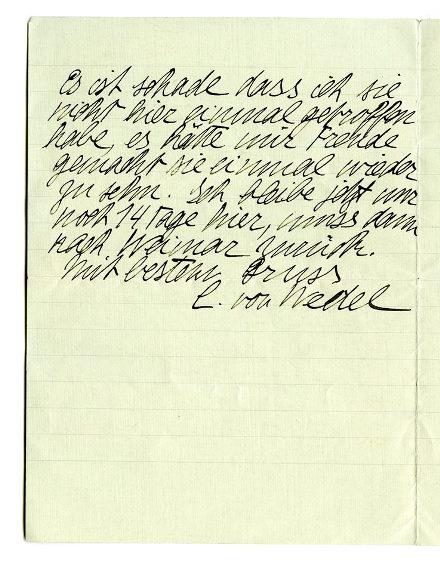 Es ist schade dass ich sie
nicht hier einmal getroffen
habe, es hätte mir Freude
gemacht sie einmal wieder
zu sehn. Ich bleibe jetzt nur
noch 14 Tage hier, muss dann
nach Weimar zurück.
Mit bestem Gruss
L. von Wedel